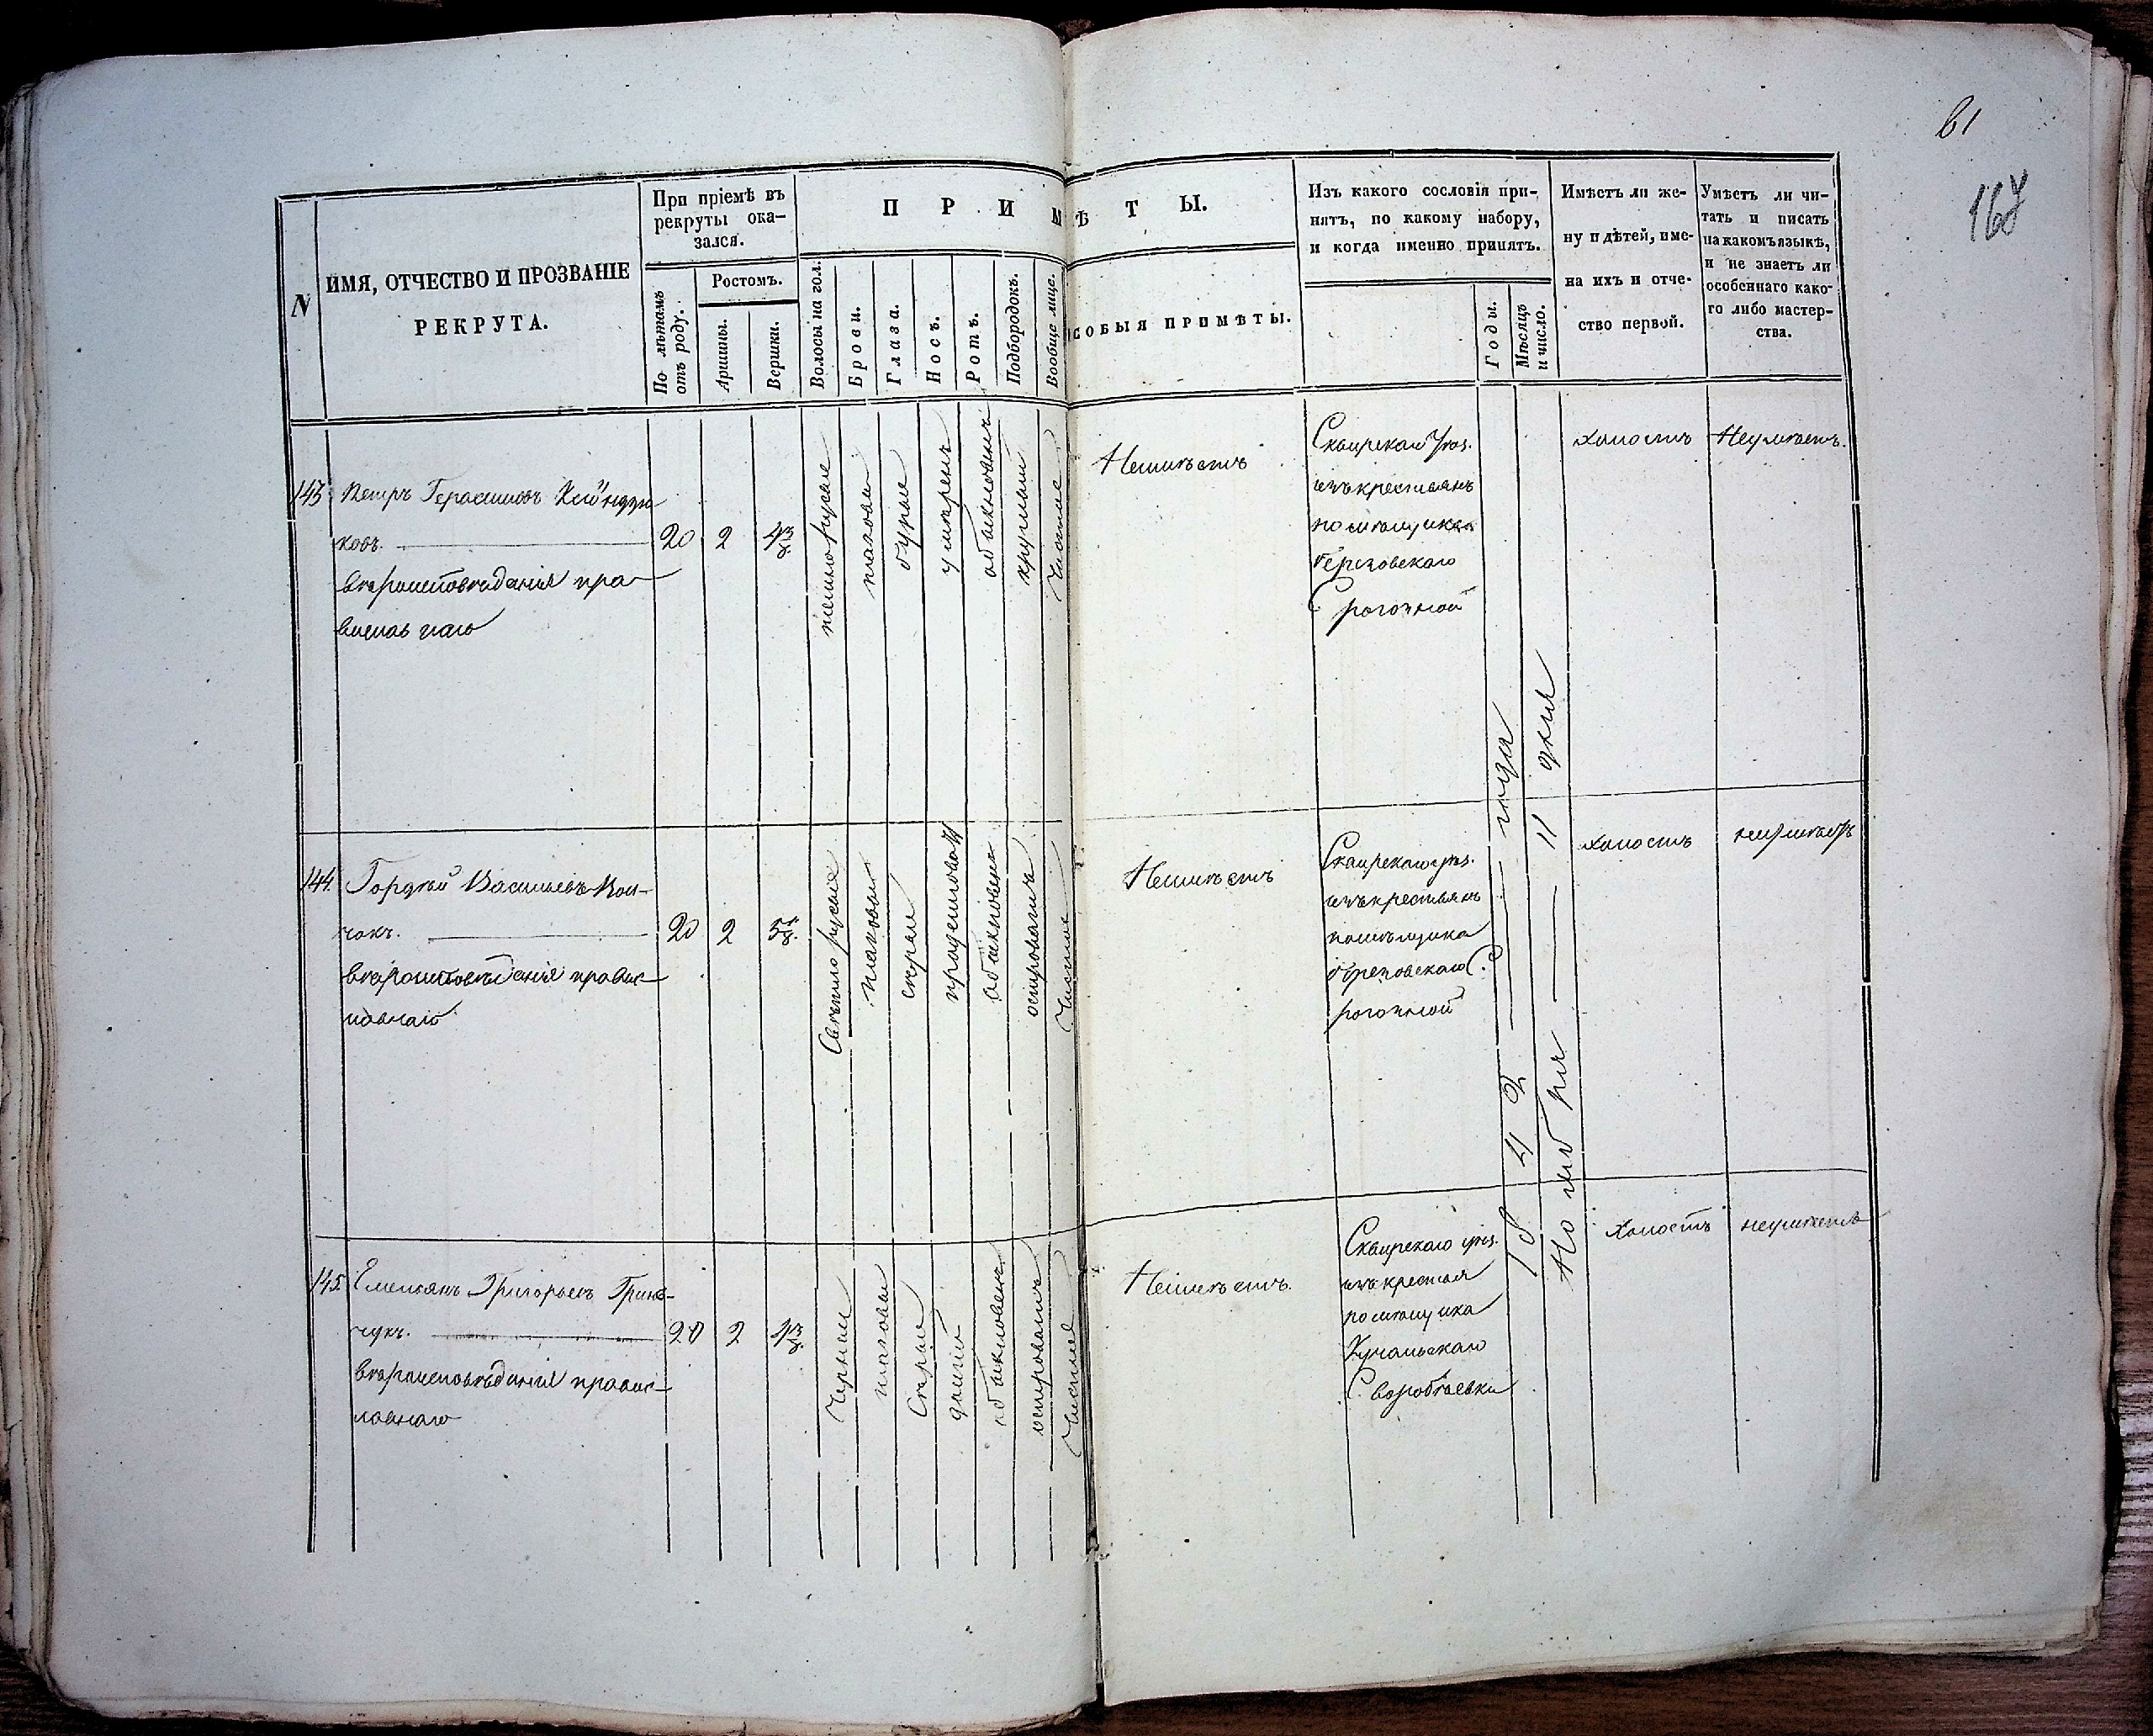 61
167
N
ИМЯ, ОТЧЕСТВО И ПРОЗВАНІЕ
РЕКРУТА.
При пріемѣ въ
рекруты ока-
зался.
По лѣтамъ
отъ роду.
Ростомъ.
Аршины.
Вершки.
П Р И М Ѣ Т Ы.
Волосы на гол.
Брови.
Глаза.
Носъ.
Ротъ.
Подбородокъ.
Вообще лице.
СОБЫЯ ПРИМѢТЫ.
Изъ какого сословія при-
нятъ, по какому набору,
и когда именно принятъ.
Годы.
Мѣсяцъ
и число.
Имѣетъ ли же-
ну и дѣтей, име-
на ихъ и отче-
ство первой.
Умѣетъ ли чи-
тать и писать
на какомъ языкѣ,
и не знаетъ ли
особеннаго како-
го либо мастер-
ства.
143
Петръ Герасимовъ
ковъ.
вѣроисповѣданія пра-
вославнаго
20
2
4 3/8
темнорусые
глазовые
бурые
умѣренъ
обыкновенъ
круглый
Чистое
Неимѣетъ
Сквирскаго уѣз.
изъ крестьянъ
помѣщика
Березовскаго
С рогозной
холостъ
Неумѣетъ.
144.
Гордѣй Васильевъ
чокъ.
вѣроисповѣданія право-
славнаго
20
2
Свѣтлорусые
сѣрые
продолговатъ
обыкновенъ
островатъ
Чистое
Неимѣетъ
Сквирскаго уѣз.
изъ крестьянъ
помѣщика
березовскаго С.
рогозной
холостъ
неумѣетъ
145.
Емельянъ Григорьевъ Грин-
чукъ.
вѣроисповѣданія право-
славнаго
20
2
4 3/8
Черные
Сѣрые
долгій
обыкновенъ
островатъ
Чистое
Неимѣетъ.
Сквирскаго уѣз.
изъ крестьян
помѣщика
С. воробіевки
1842 года
Ноября 11 дня
Холостъ
неумѣетъ